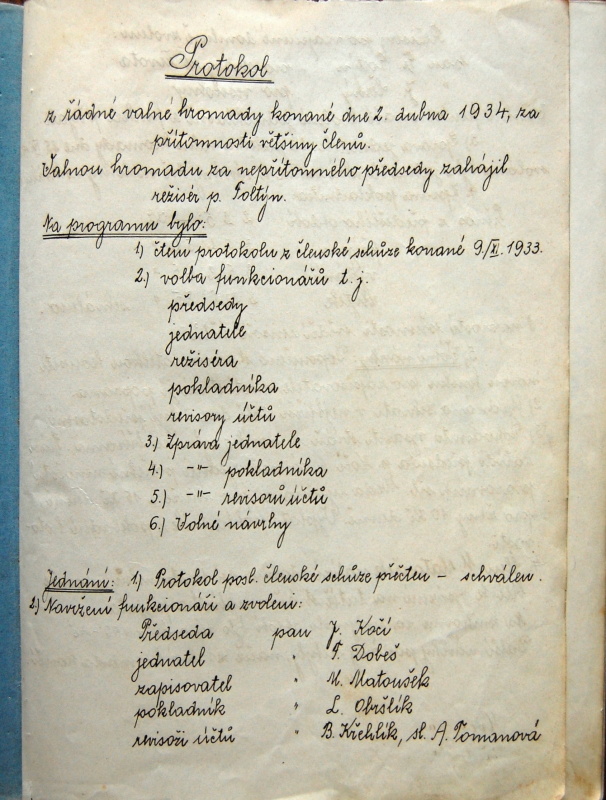 Protokol
z řádné valné hromady konané dne 2. dubna 1934, za
přítomnosti většiny členů.
Valnou hromadu za nepřítomného předsedy zahájil
režisér p. Foltýn.
Na programu bylo:
1) čtení protokolu z členské schůze konané 9./XI. 1933.
2.) volba funkcionářů t. j.
předsedy
jednatele
režiséra
pokladníka
revisory účtů
3.) Zpráva jednatele
4.) -"- pokladníka
5.) -"- revisorů účtů
6.) Volné návrhy
Jednání: 1) Protokol posl. členské schůze přečten – schválen.
2.) Navrženi funkcionáři a zvoleni:
Předseda pan J. Kočí
jednatel " F. Dobeš
zapisovatel " M. Matoušek
pokladník " L. Obršlík
revisoři účtů " B. Křehlík, sl. A. Tomanová